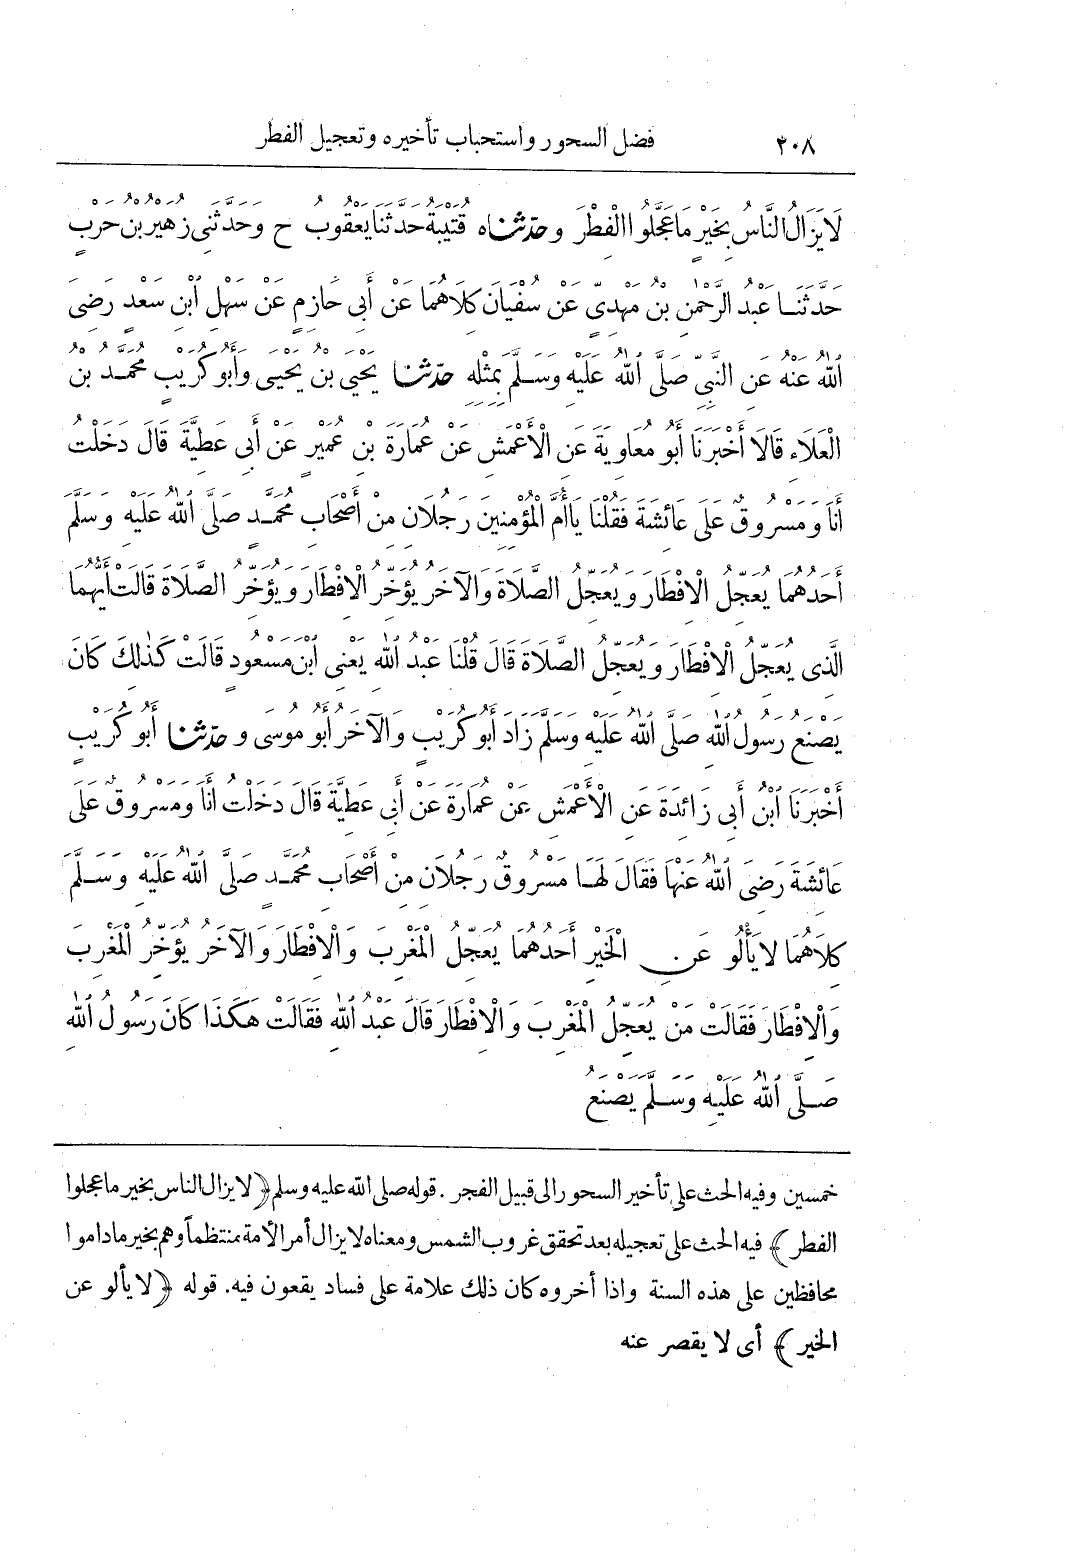 ٢٠٨ فضل السحور واستحباب تأخيره وتعجيل الفطر
لَا يَزَالُ النَّاسُ بِخَيْرٍ مَا عَجَّلُوا الْفِطْرَ و حدثناه قُتَيْبَةُ حَدَّثَنَا يَعْقُوبُ ح وَحَدَّثَنِى زُهَيْرُ بْنُ حَرْبٍ
حَدَّثَنَا عَبْدُ الرَّحْمٰنِ بْنُ مَهْدِىٍّ عَنْ سُفْيَانَ كِلَاهُمَا عَنْ أَبِى حَازِمٍ عَنْ سَهْلِ ابْنِ سَعْدٍ رَضِىَ
اللّٰهُ عَنْهُ عَنِ النَّبِىِّ صَلَّى اللّٰهُ عَلَيْهِ وَسَلَّمَ بِمِثْلِهِ حدثنا يَحْيَى بْنُ يَحْيَى وَأَبُو كُرَيْبٍ مُحَمَّدُ بْنُ
الْعَلَاءِ قَالَا أَخْبَرَنَا أَبُو مُعَاوِيَةَ عَنِ الْأَعْمَشِ عَنْ عُمَارَةَ بْنِ عُمَيْرٍ عَنْ أَبِى عَطِيَّةَ قَالَ دَخَلْتُ
أَنَا وَمَسْرُوقٌ عَلَى عَائِشَةَ فَقُلْنَا يَا أُمَّ الْمُؤْمِنِينَ رَجُلَانِ مِنْ أَصْحَابِ مُحَمَّدٍ صَلَّى اللّٰهُ عَلَيْهِ وَسَلَّمَ
أَحَدُهُمَا يُعَجِّلُ الْإِفْطَارَ وَيُعَجِّلُ الصَّلَاةَ وَالْآخَرُ يُؤَخِّرُ الْإِفْطَارَ وَيُؤَخِّرُ الصَّلَاةَ قَالَتْ أَيُّهُمَا
الَّذِى يُعَجِّلُ الْإِفْطَارَ وَيُعَجِّلُ الصَّلَاةَ قَالَ قُلْنَا عَبْدُ اللّٰهِ يَعْنِى ابْنَ مَسْعُودٍ قَالَتْ كَذٰلِكَ كَانَ
يَصْنَعُ رَسُولُ اللّٰهِ صَلَّى اللّٰهُ عَلَيْهِ وَسَلَّمَ زَادَ أَبُو كُرَيْبٍ وَالْآخَرُ أَبُو مُوسَى و حدثنا أَبُو كُرَيْبٍ
أَخْبَرَنَا ابْنُ أَبِى زَائِدَةَ عَنِ الْأَعْمَشِ عَنْ عُمَارَةَ عَنْ أَبِى عَطِيَّةَ قَالَ دَخَلْتُ أَنَا وَمَسْرُوقٌ عَلَى
عَائِشَةَ رَضِىَ اللّٰهُ عَنْهَا فَقَالَ لَهَا مَسْرُوقٌ رَجُلَانِ مِنْ أَصْحَابِ مُحَمَّدٍ صَلَّى اللّٰهُ عَلَيْهِ وَسَلَّمَ
كِلَاهُمَا لَا يَأْلُو عَنِ الْخَيْرِ أَحَدُهُمَا يُعَجِّلُ الْمَغْرِبَ وَالْإِفْطَارَ وَالْآخَرُ يُؤَخِّرُ الْمَغْرِبَ
وَالْإِفْطَارَ فَقَالَتْ مَنْ يُعَجِّلُ الْمَغْرِبَ وَالْإِفْطَارَ قَالَ عَبْدُ اللّٰهِ فَقَالَتْ هَكَذَا كَانَ رَسُولُ اللّٰهِ
صَلَّى اللّٰهُ عَلَيْهِ وَسَلَّمَ يَصْنَعُ
خمسين وفيه الحث على تأخير السحور الى قبيل الفجر . قوله صلى الله عليه وسلم ﴿لا يزال الناس بخير ما عجلوا
الفطر﴾ فيه الحث على تعجيله بعد تحقق غروب الشمس ومعناه لا يزال أمر الأمة منتظماً وهم بخير ما داموا
محافظين على هذه السنة واذا أخروه كان ذلك علامة على فساد يقعون فيه. قوله ﴿لا يألو عن
الخير﴾ أى لا يقصر عنه